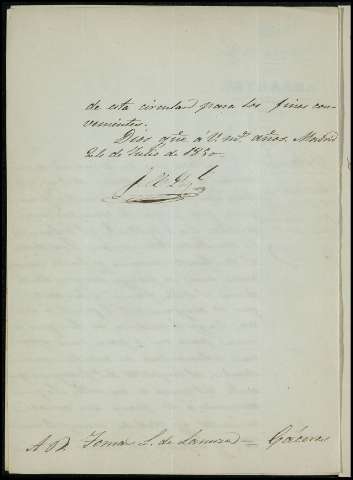 de esta circular para los fines con-
venientes.
Dios gue á V. ms. años. Madrid
24 de Julio de 1850
A D. Tomas S. de — Cáceres